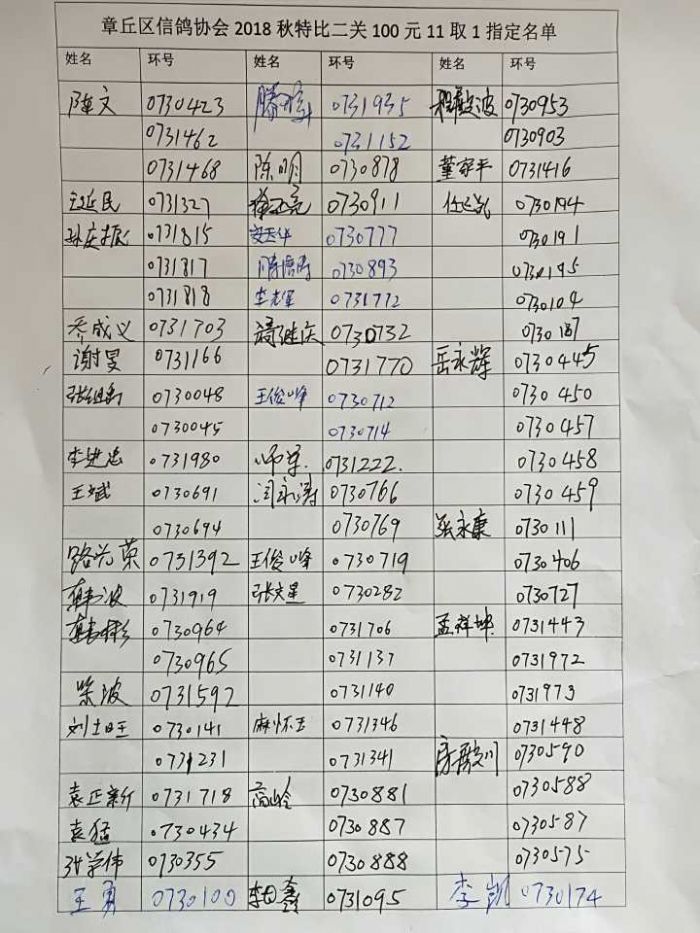 章丘区信鸽协会 2018 秋特比二关 100 元 11 取 1 指定名单
姓名 环号 姓名 环号 姓名 环号
陈文 0730423 0731935 0730953
0731462 0731152 0730903
0731468 陈明 0730878 董家平 0731416
王延民 0731327 0730911 0730194
孙庆振 0731815 0730777 0730191
0731817 0730893 0730195
0731818 0731772 0730104
乔成义 0731703 0730732 0730187
谢旻 0731166 0731770 岳永辉 0730445
0730048 王俊峰 0730712 0730450
0730045 0730714 0730457
李进忠 0731980 师军 0731222 0730458
王斌 0730691 闫永涛 0730766 0730459
0730694 0730769 张永康 0730111
路兴荣 0731392 王俊峰 0730719 0730406
韩波 0731919 0730282 0730727
韩彬 0730964 0731706 孟祥坤 0731443
0730965 0731137 0731972
柴波 0731592 0731140 0731973
0730141 麻怀玉 0731346 0731448
0731231 0731341 0730590
袁正新 0731718 高岭 0730881 0730588
袁猛 0730434 0730887 0730587
张学伟 0730355 0730888 0730575
王勇 0730100 0731095 李凯 0730174